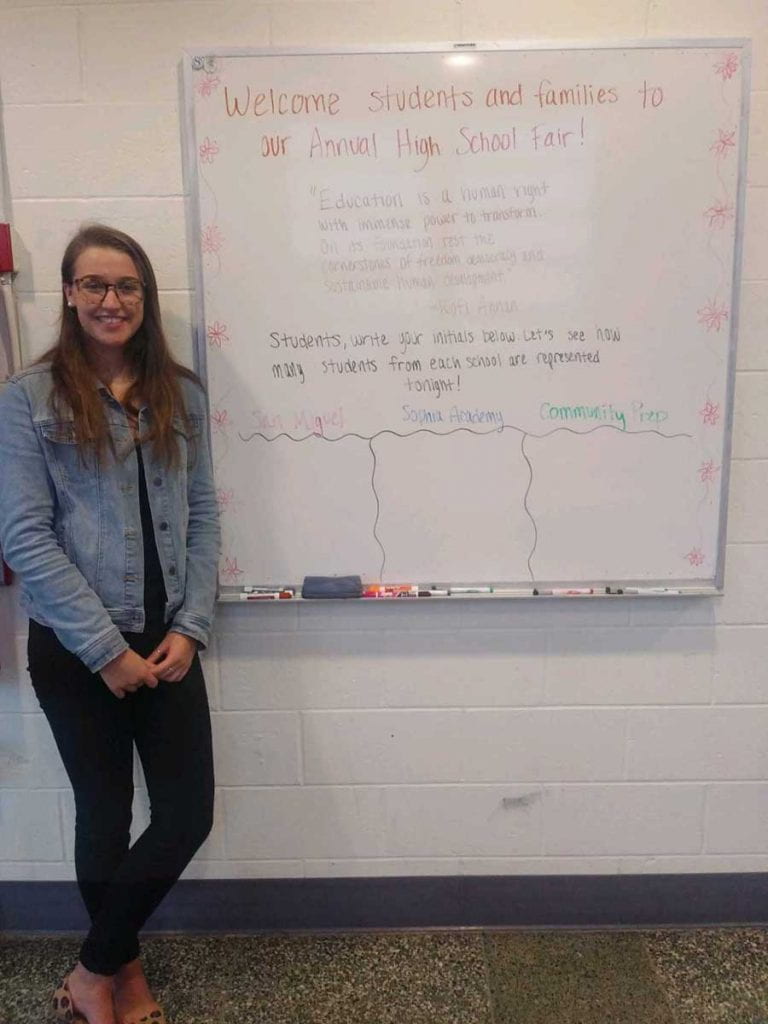 Welcome students and families to
our Annual High School Fair!
"Education is a human right
with immense power to transform.
On its foundation rest the
cornerstones of freedom democracy and
sustainable human development"
-Kofi Annan
Students, write your initials below. Let's see how
many students from each school are represented
tonight!
San Miguel Sophia Academy Community Prep